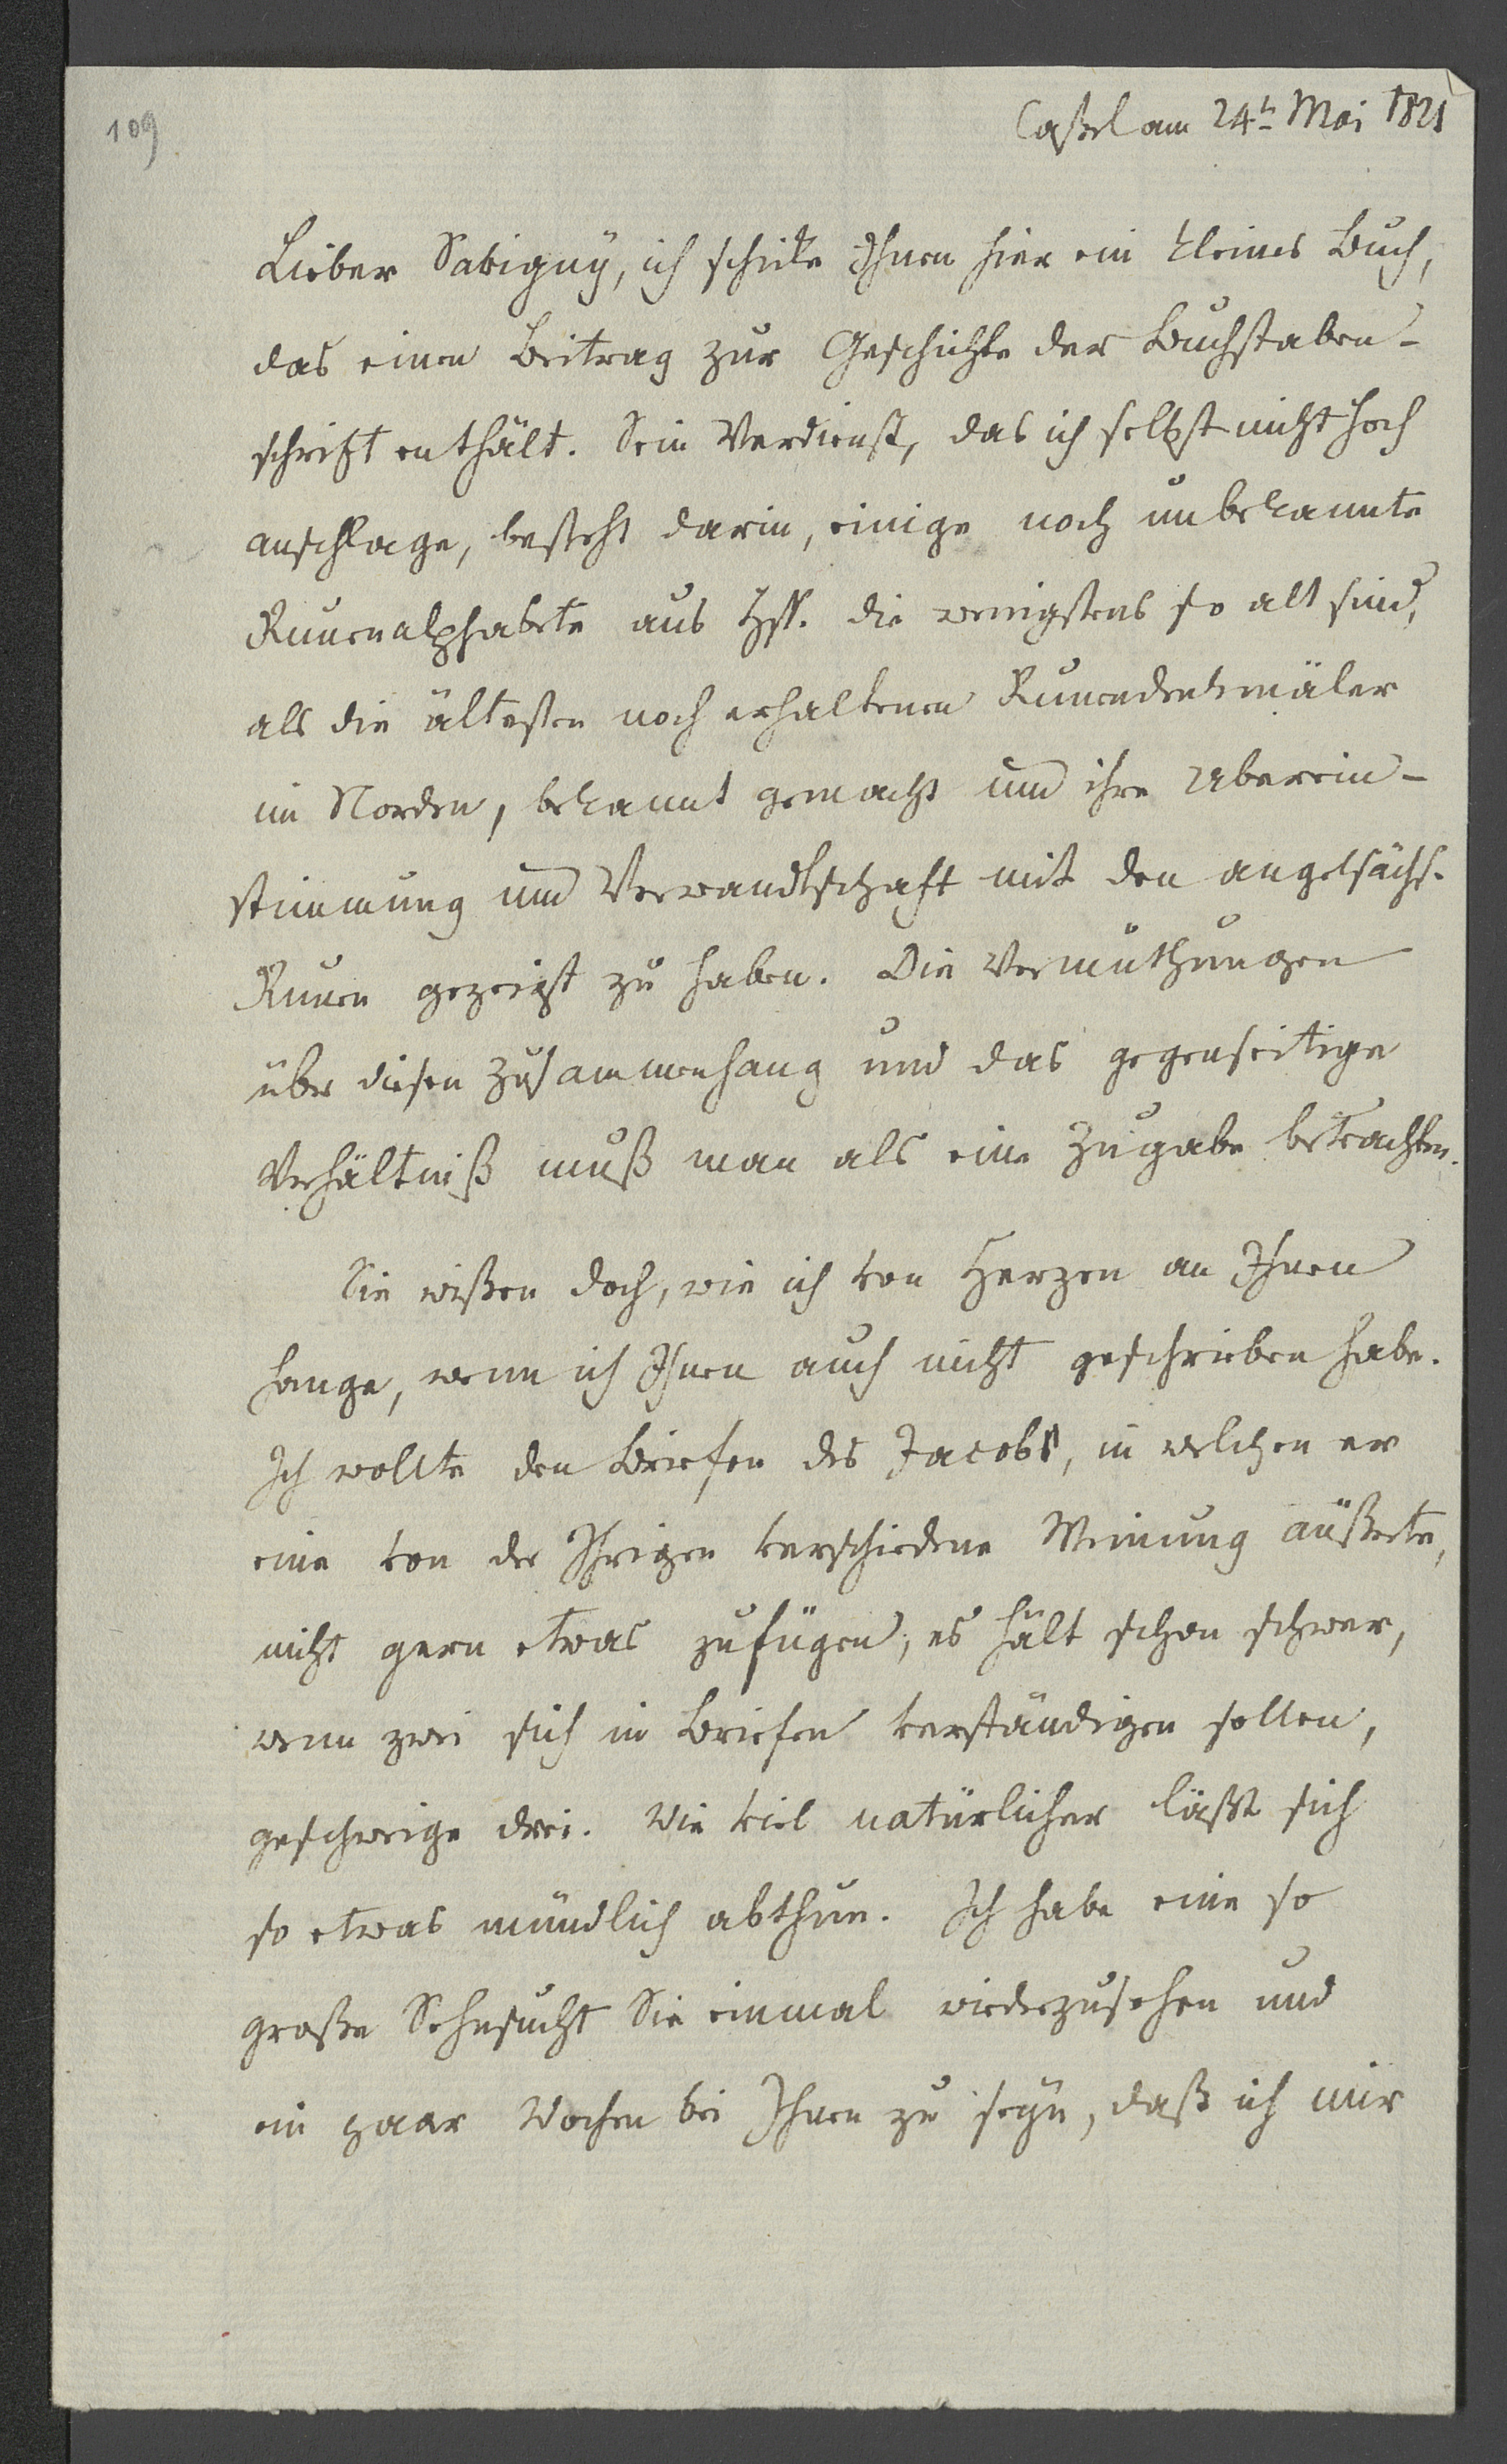 109
Caßel am 24t Mai 1821
Lieber Savigny, ich schicke Ihnen hier ein kleines Buch,
das einen Beitrag zur Geschichte der Buchstaben-
schrift enthält. Sein Verdienst, das ich selbst nicht hoch
anschlage, besteht darin, einige noch unbekannte
Runenalphabete aus Hss. die wenigstens so alt sind,
als die ältesten noch erhaltenen Runendenkmäler
im Norden, bekannt gemacht und ihre Uberein-
stimmung und Verwandtschaft mit den angelsächs.
Runen gezeigt zu haben. Die Vermuthungen
über diesen Zusammenhang und das gegenseitige
Verhältniß muß man als eine Zugabe betrachten.
Sie wißen doch, wie ich von Herzen an Ihnen
hange, wenn ich Ihnen auch nicht geschrieben habe.
Ich wollte den Briefen des Jacobs, in welchen er
eine von der Ihrigen verschiedene Meinung äußerte,
nicht gern etwas zufügen; es hält schon schwer,
wenn zwei sich in Briefen verständigen sollen,
geschweige drei. Wie viel natürlicher läßt sich
so etwas mündlich abthun. Ich habe eine so
große Sehnsucht Sie einmal wiederzusehen und
ein paar Wochen bei Ihnen zu seyn, daß ich mir